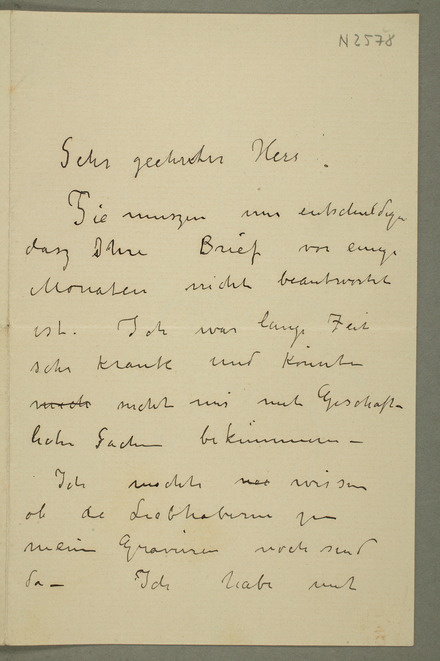 N 2578
Sehr geehrter Herr!
Sie muszen mir entschuldigen
dasz Ihre Brief vor einige
Monaten nicht beantwortet
ist. Ich war lange Zeit
sehr krank und konnte
nicht mir mit Geschäft-
liche Sachen bekümmern –
Ich mochte wissen
ob die Liebhaberin zu
meine Gravuren noch sind
da – Ich habe mit